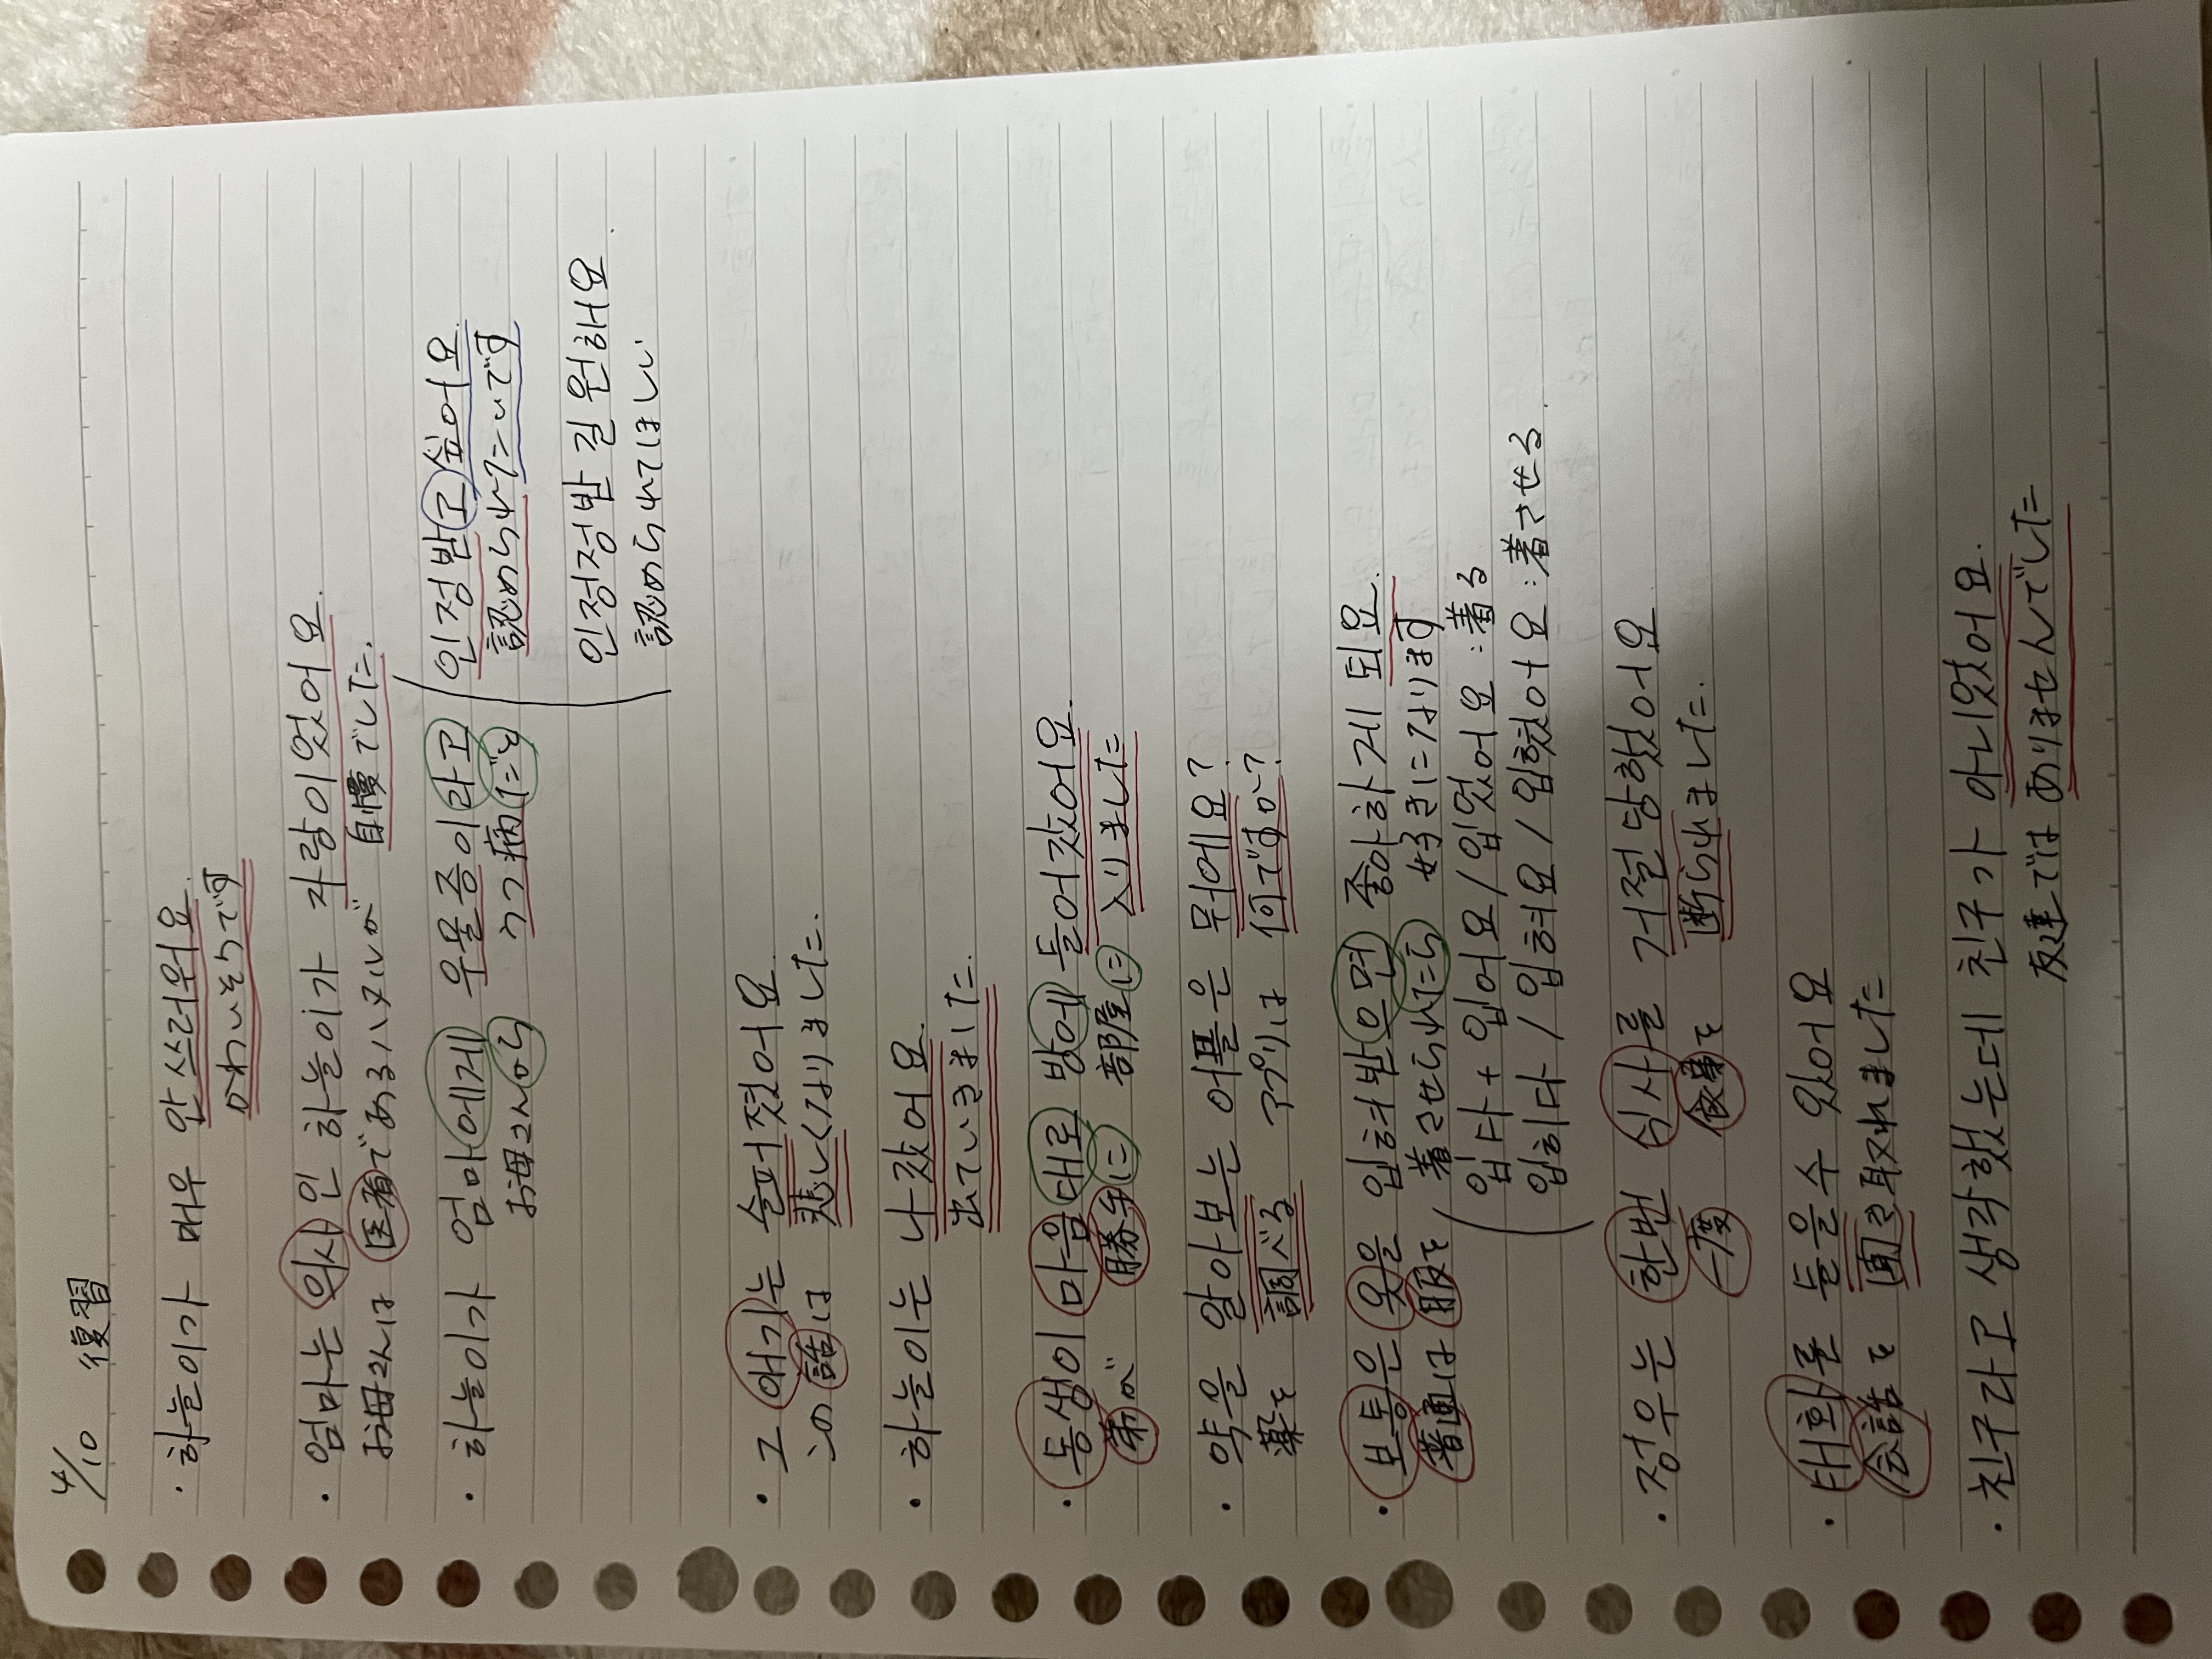 4/10 復習
・하늘이가 매우 안쓰러워요.
かわいそうです
・엄마는 의사인 하늘이가 자랑이었어요.
お母さんは 医者であるハヌルが 自慢でした.
・하늘이가 엄마에게 우울증이라고 (인정받고싶어요.
お母さんから うつ病だと 認められたいです
인정정받길 원해요.
認められてほしい
・그 얘기는 슬퍼졌어요.
この話は 悲しくなりました.
・하늘이는 나갔어요.
出ていきました
・동생이 마음대로 방에 들어갔어요.
弟が 勝手に 部屋に 入りました
・약을 알아보는 어플은 무어에요?
薬を 調べる アプリは 何ですか?
・보통은 옷을 입혀받으면 좋아하게 되요.
普通は 服を 着させられたら 好きになります
(입다+입어요/입었어요:着る
입히다/입혀요/입혔어요:着させる.
・정우는 한번 심사를 거절당했어요
一度 食事を 断られました.
・대화를 들을수 있어요
会話を 聞き取れました
・친구라고 생각했는데 친구가 아니었어요.
友達では ありませんでした